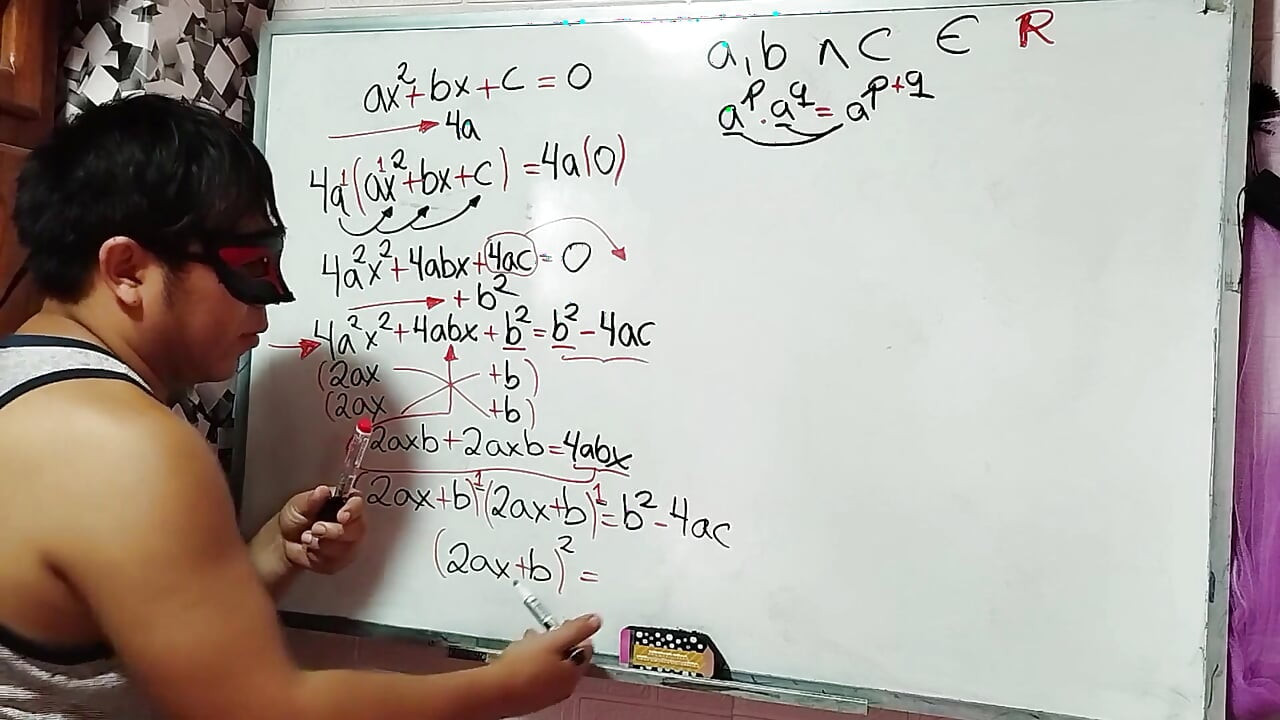 ax²+bx+c=0
4a
4a¹(a¹x²+bx+c)=4a(0)
4a²x²+4abx+4ac=0
+b²
4a²x²+4abx+b²=b²-4ac
(2ax +b)
(2ax +b)
2axb+2axb=4abx
2ax+b)¹(2ax+b)¹=b²-4ac
(2ax+b)²=
a,b ∧ C ∈ R
a^p·a^q=a^p+q